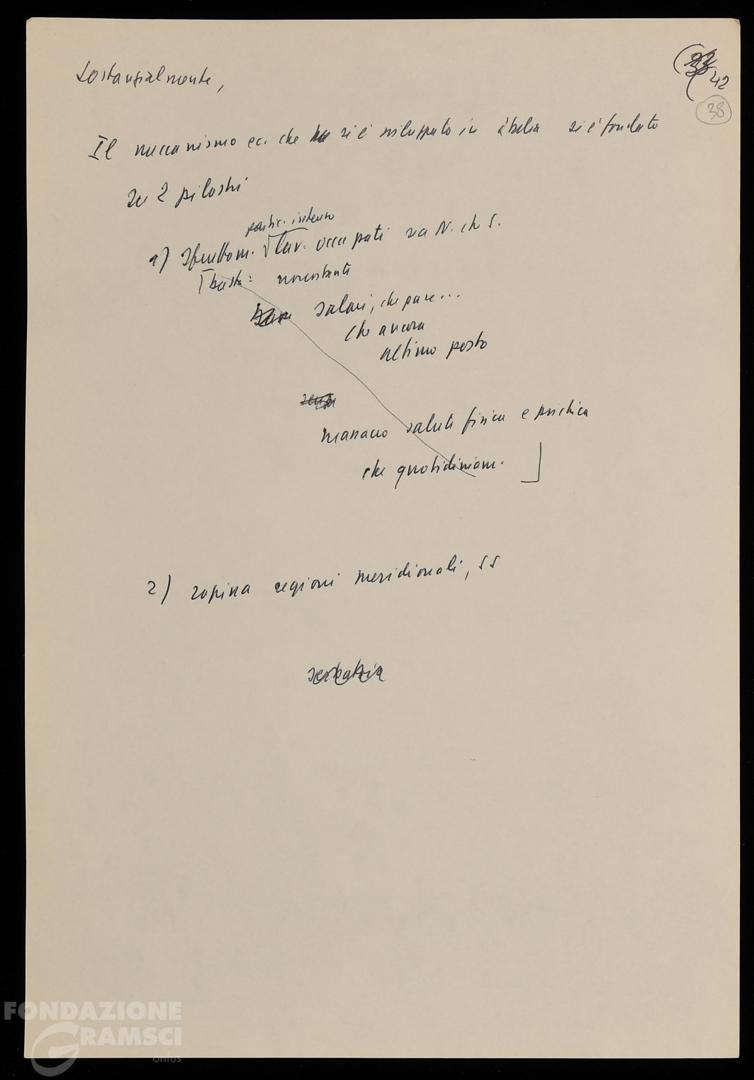 Sostanzialmente,
42
38
Il meccanismo ec. che si è sviluppato in Italia si è fondato
su 2 pilastri
partic. intenso
1) Sfruttam. lav. occupati sia N. che S.
basta: nonostante
salari, che pure...
che ancora
ultimo posto
salute fisica e psichica
che quotidianam.
2) rapina regioni meridionali, SS
FONDAZIONE
GRAMSCI
onlus